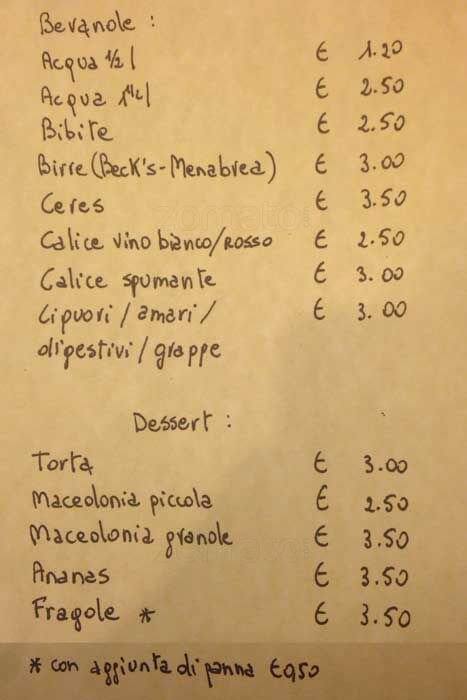 Bevande :
Acqua 1/2 l € 1.20
Acqua 1 1/2 l € 2.50
Bibite € 2.50
Birre (Beck's-Menabrea) € 3.00
Ceres € 3.50
Calice vino bianco/rosso € 2.50
Calice spumante € 3.00
Liquori / amari / € 3.00
digestivi / grappe
Dessert :
Torta € 3.00
Macedonia piccola € 2.50
Macedonia grande € 3.50
Ananas € 3.50
Fragole * € 3.50
* con aggiunta di panna €0,50
zomato